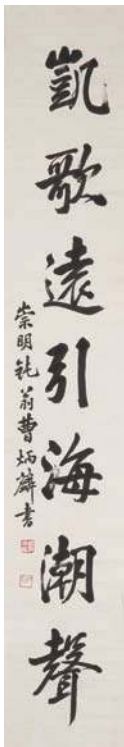 凱歌遠引海潮聲
崇明鈍翁曹炳麟書